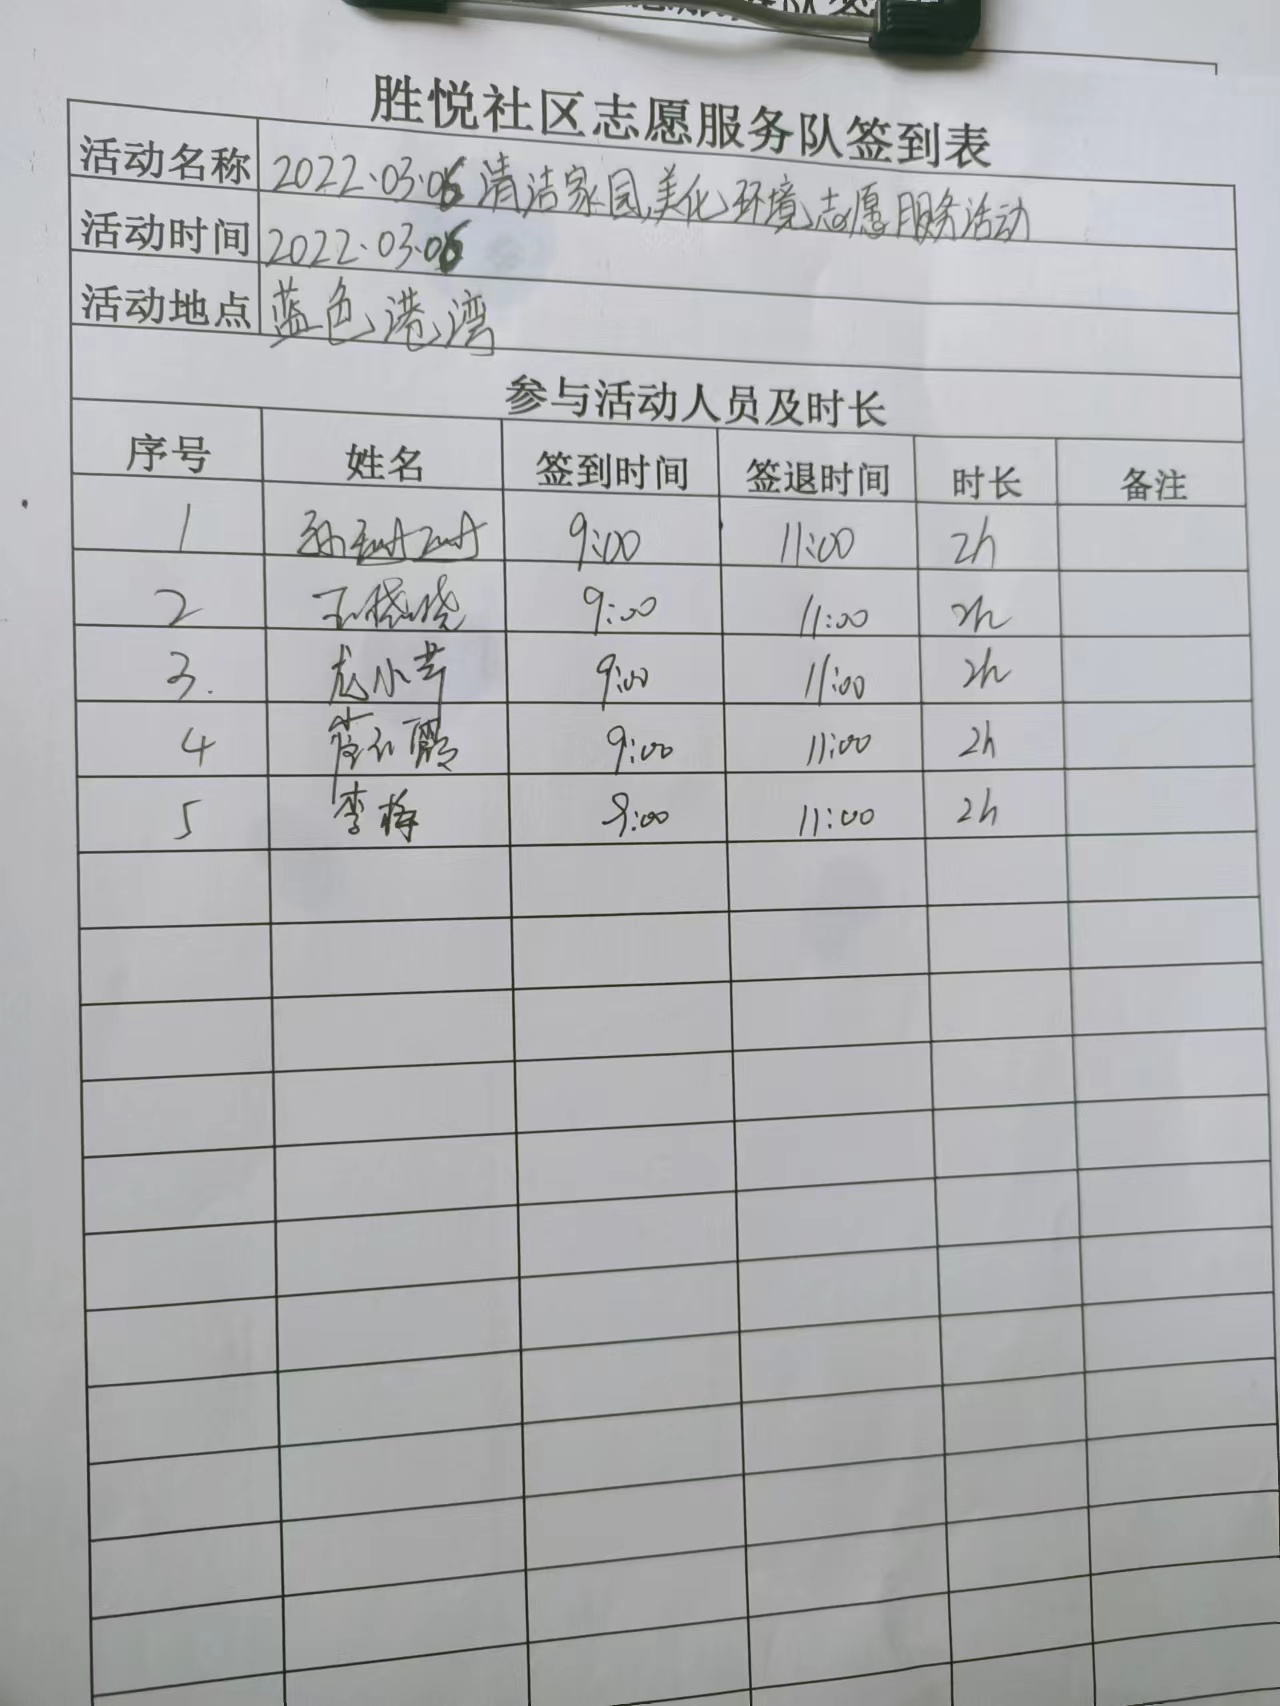 胜悦社区志愿服务队签到表
活动名称 2022.03.06清洁家园,美化环境志愿服务活动
活动时间 2022.03.06
活动地点 蓝色港湾
参与活动人员及时长
序号 姓名 签到时间 签退时间 时长 备注
1 9:00 11:00 2h
2 王晓晓 9:00 11:00 2h
3. 龙小芳 9:00 11:00 2h
4 9:00 11:00 2h
5 李梅 9:00 11:00 2h